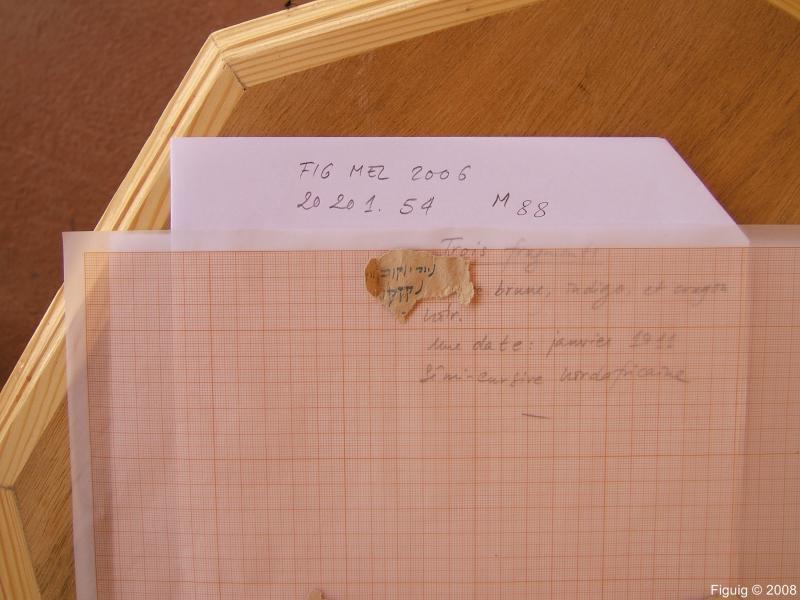 FIG MEL 2006
20 20 1. 54 M 88
Trois fragments
brune, indigo, et crayon
noir.
une date: janvier 1911
Sémi-cursive nordafricaine
Figuig © 2008